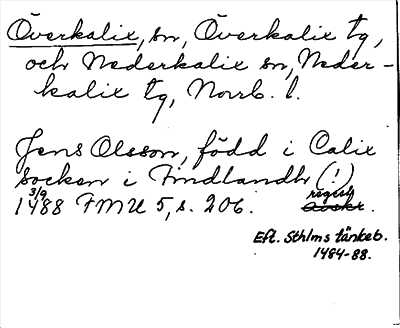 Överkalix, sn, Överkalix tg,
och Nederkalix sn, Neder-
kalix tg, Norrb. l.
Jens Olsson, född i Calix
socken i Findlandh (!)
3/9 regist
1488 FMU 5, s. 206.
Eft. Sthlms tänkeb.
1484-88.